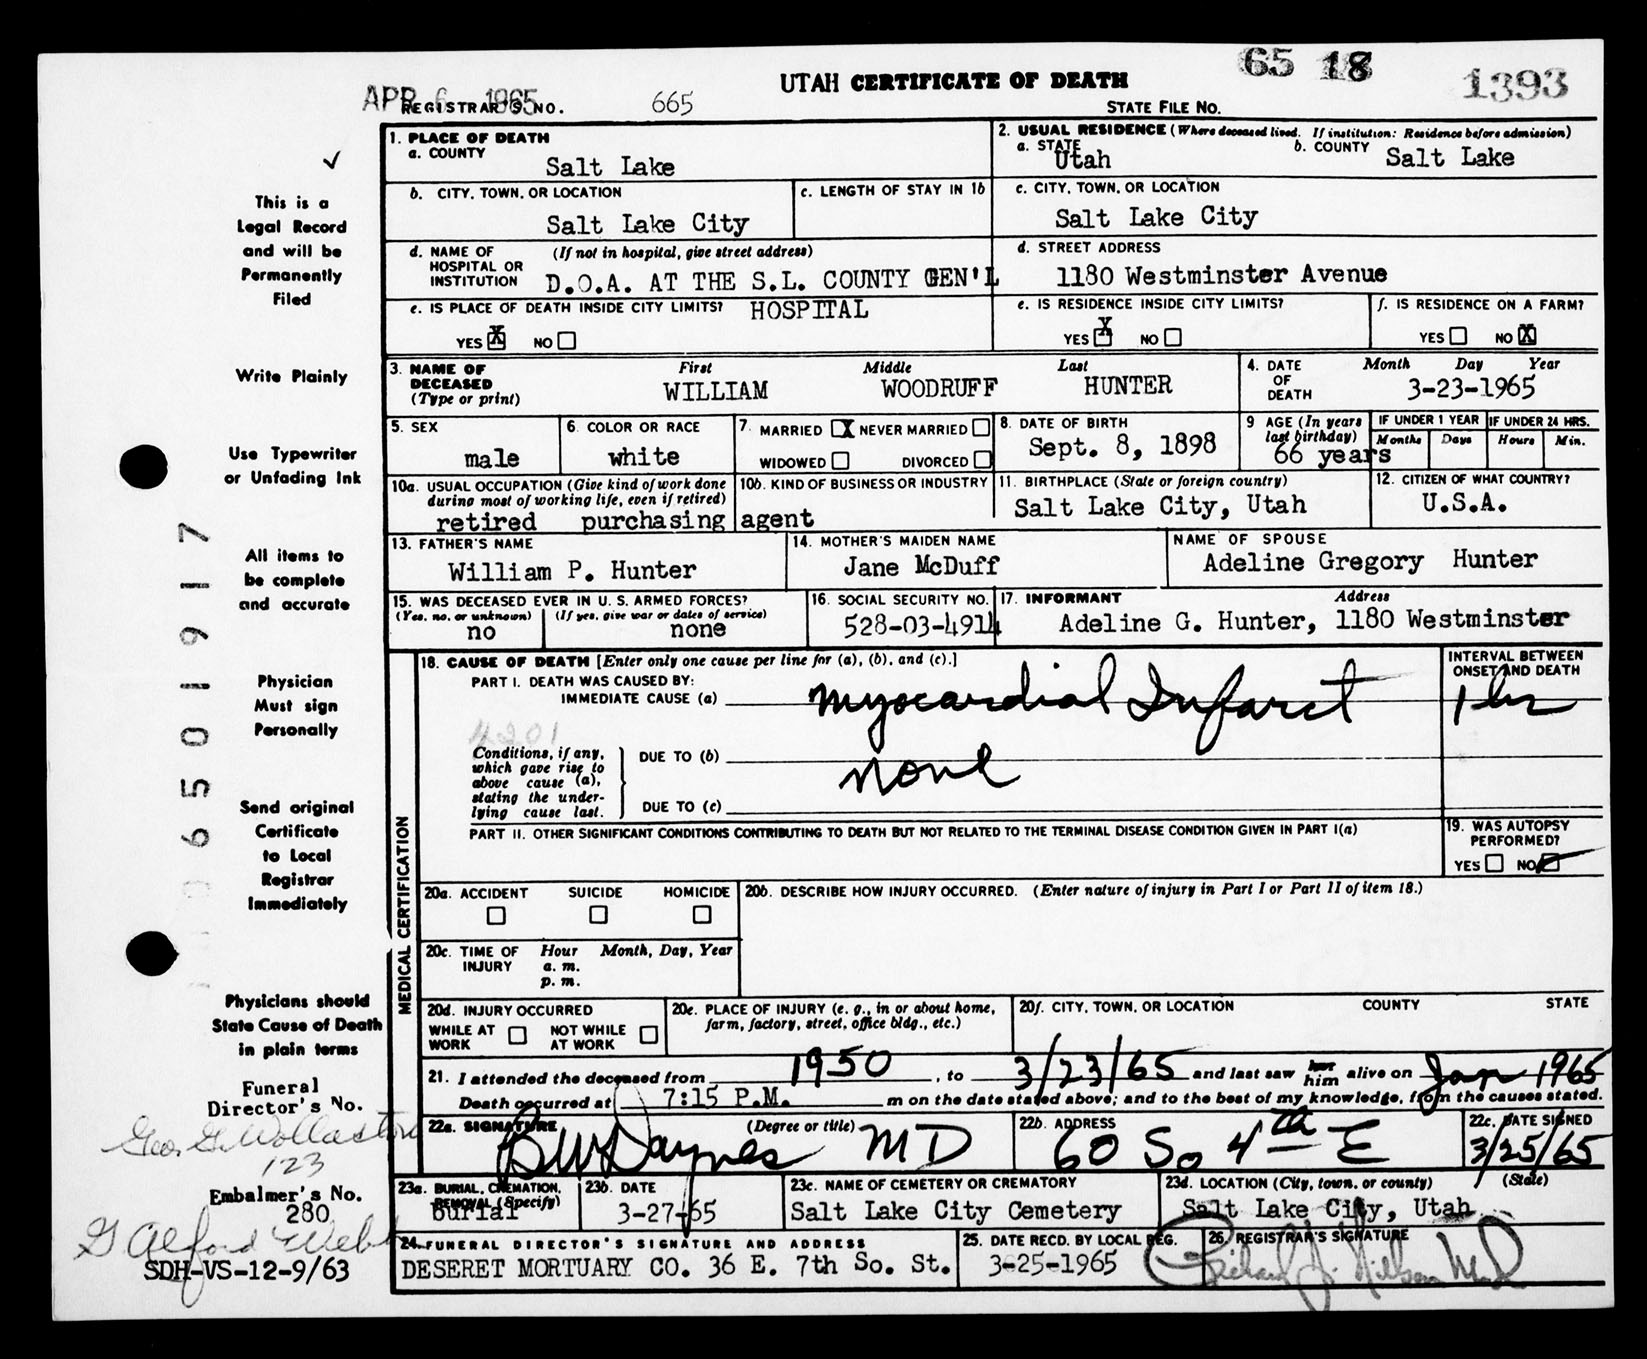 65 18
UTAH CERTIFICATE OF DEATH
1393
APR 6 1965
REGISTRAR'S NO. 665 STATE FILE NO.
1. PLACE OF DEATH
a. COUNTY
Salt Lake
2. USUAL RESIDENCE (Where deceased lived. If institution: Residence before admission)
a. STATE Utah b. COUNTY Salt Lake
b. CITY, TOWN, OR LOCATION
Salt Lake City
c. LENGTH OF STAY IN 1b
c. CITY, TOWN, OR LOCATION
Salt Lake City
d. NAME OF HOSPITAL OR INSTITUTION (If not in hospital, give street address)
D.O.A. AT THE S.L. COUNTY GEN'L
HOSPITAL
d. STREET ADDRESS
1180 Westminster Avenue
e. IS PLACE OF DEATH INSIDE CITY LIMITS?
YES X NO
e. IS RESIDENCE INSIDE CITY LIMITS?
YES X NO
f. IS RESIDENCE ON A FARM?
YES NO X
3. NAME OF DECEASED (Type or print)
First Middle Last
WILLIAM WOODRUFF HUNTER
4. DATE OF DEATH
Month Day Year
3-23-1965
5. SEX
male
6. COLOR OR RACE
white
7. MARRIED X NEVER MARRIED
WIDOWED DIVORCED
8. DATE OF BIRTH
Sept. 8, 1898
9 AGE (In years last birthday)
66 years
IF UNDER 1 YEAR IF UNDER 24 HRS.
Months Days Hours Min.
10a. USUAL OCCUPATION (Give kind of work done during most of working life, even if retired)
10b. KIND OF BUSINESS OR INDUSTRY
retired purchasing agent
11. BIRTHPLACE (State or foreign country)
Salt Lake City, Utah
12. CITIZEN OF WHAT COUNTRY?
U.S.A.
13. FATHER'S NAME
William P. Hunter
14. MOTHER'S MAIDEN NAME
Jane McDuff
NAME OF SPOUSE
Adeline Gregory Hunter
15. WAS DECEASED EVER IN U. S. ARMED FORCES?
(Yes, no, or unknown) (If yes, give war or dates of service)
no none
16. SOCIAL SECURITY NO.
528-03-4914
17. INFORMANT Address
Adeline G. Hunter, 1180 Westminster
MEDICAL CERTIFICATION
18. CAUSE OF DEATH [Enter only one cause per line for (a), (b), and (c).]
PART I. DEATH WAS CAUSED BY:
IMMEDIATE CAUSE (a) Myocardial Infarct
INTERVAL BETWEEN ONSET AND DEATH
1 hr
4201
Conditions, if any, which gave rise to above cause (a), stating the underlying cause last.
DUE TO (b)
none
DUE TO (c)
PART II. OTHER SIGNIFICANT CONDITIONS CONTRIBUTING TO DEATH BUT NOT RELATED TO THE TERMINAL DISEASE CONDITION GIVEN IN PART I(a)
19. WAS AUTOPSY PERFORMED?
YES NO
20a. ACCIDENT SUICIDE HOMICIDE
20b. DESCRIBE HOW INJURY OCCURRED. (Enter nature of injury in Part I or Part II of item 18.)
20c. TIME OF INJURY Hour Month, Day, Year
a. m.
p. m.
20d. INJURY OCCURRED
WHILE AT WORK NOT WHILE AT WORK
20e. PLACE OF INJURY (e. g., in or about home, farm, factory, street, office bldg., etc.)
20f. CITY, TOWN, OR LOCATION COUNTY STATE
21. I attended the deceased from 1950, to 3/23/65 and last saw her him alive on Jan 1965
Death occurred at 7:15 P.M. m on the date stated above; and to the best of my knowledge, from the causes stated.
22a. SIGNATURE (Degree or title)
BW Daynes MD
22b. ADDRESS
60 So 4th E
22c. DATE SIGNED
3/25/65
23a. BURIAL, CREMATION, REMOVAL (Specify)
Burial
23b. DATE
3-27-65
23c. NAME OF CEMETERY OR CREMATORY
Salt Lake City Cemetery
23d. LOCATION (City, town, or county) (State)
Salt Lake City, Utah
24. FUNERAL DIRECTOR'S SIGNATURE AND ADDRESS
DESERET MORTUARY CO. 36 E. 7th So. St.
25. DATE RECD. BY LOCAL REG.
3-25-1965
26. REGISTRAR'S SIGNATURE
This is a
Legal Record
and will be
Permanently
Filed
Write Plainly
Use Typewriter
or Unfading Ink
All items to
be complete
and accurate
Physician
Must sign
Personally
Send original
Certificate
to Local
Registrar
Immediately
Physicians should
State Cause of Death
in plain terms
Funeral
Director's No.
Geo. G. Wollaston
123
Embalmer's No.
280
G Alford Webb
SDH-VS-12-9/63
0 6 5 0 1 9 1 7